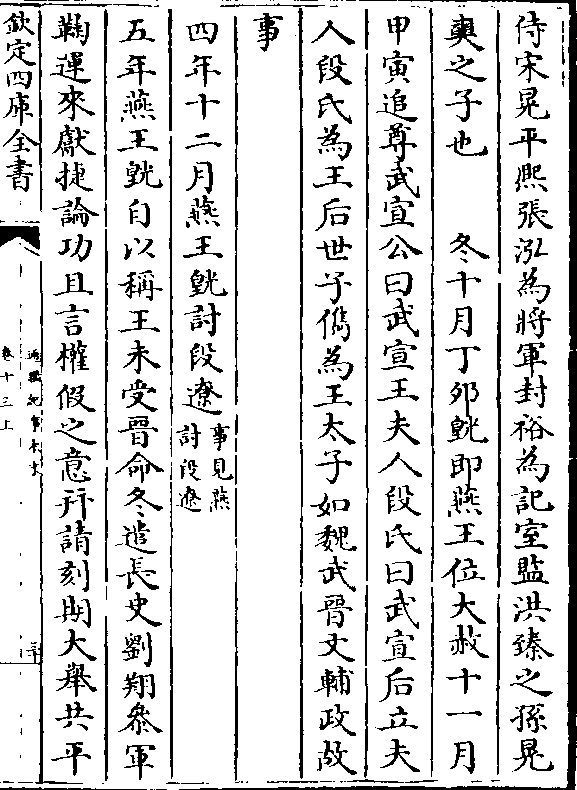 侍宋晃平熙張泓為將軍封裕為記室監洪臻之孫晃
奭之子也　　冬十月丁夘皝即燕王位大赦十一月
甲寅追尊武宣公曰武宣王夫人段氏曰武宣后立夫
人段氏為王后世子儁為王太子如魏武晉文輔政故
事
四年十二月燕王皝討段遼事見燕討段遼
五年燕王皝自以稱王未受晉命冬遣長史劉翔叅軍
鞠運來獻捷論功且言權假之意并請刻期大舉共平
欽定四庫全書
通鑑紀事本末
卷十三上